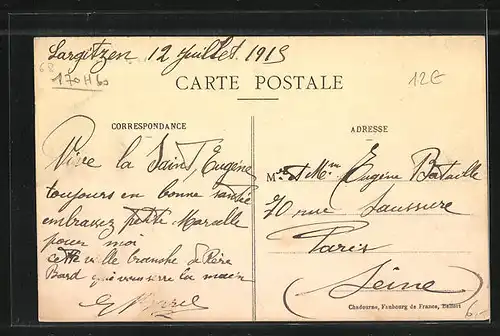 Largitzen, 12 Juillet 1915
68
170 H 60
CARTE POSTALE
12€
CORRESPONDANCE
ADRESSE
Vive la Saint Eugène
toujours en bonne santé
embrassez petite Marcelle
pour moi
cette ville branche de Père
Bard qui vous serre la main
Mr et Mme Eugène Bataille
70 rue Saussure
Paris
(Seine)
Chadourne, Faubourg de France, Belfort
6.-